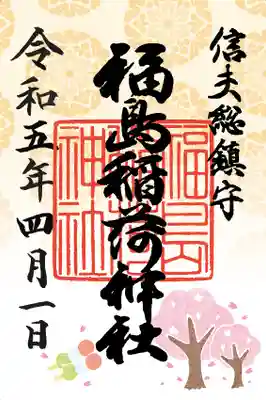 信夫総鎮守
福島稲荷神社
福島稲荷神社
令和五年四月一日